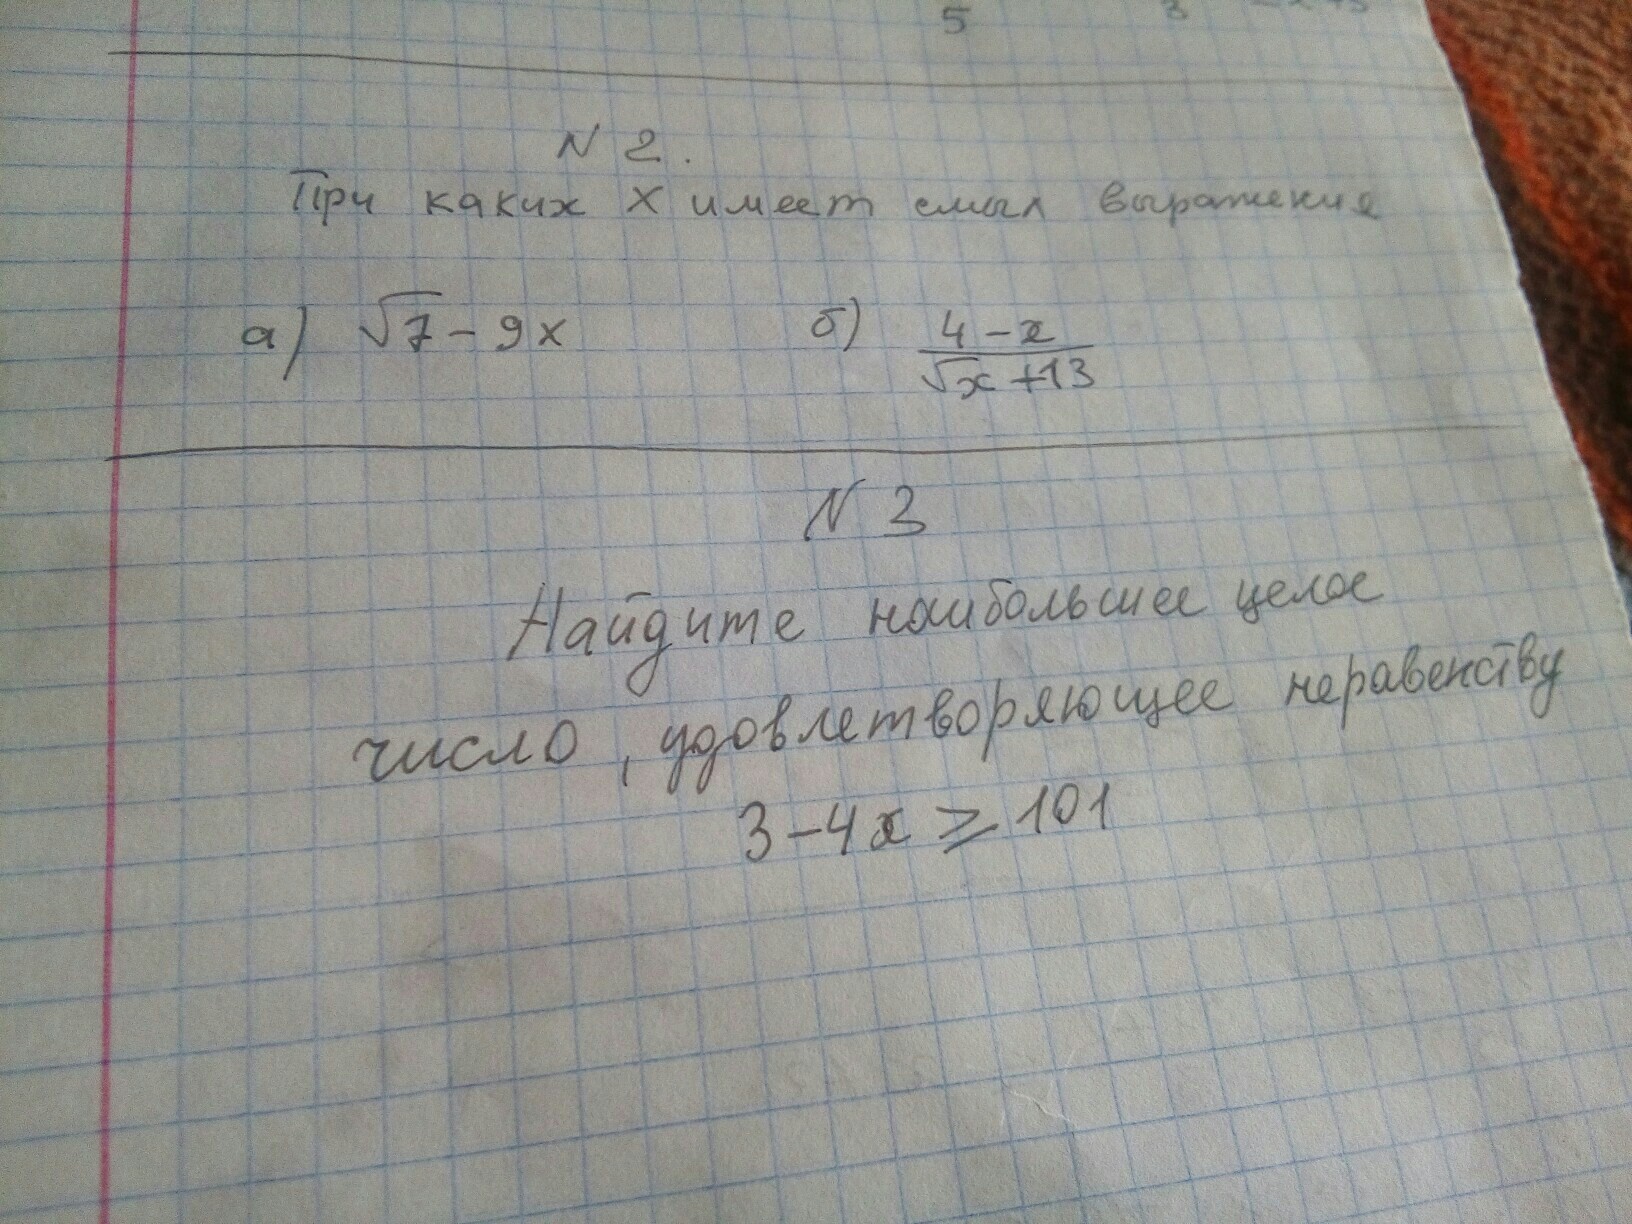 5 3
N 2.
При каких x имеет смысл выражения
а) √7 - 9x б) (4 - x)/(√x + 13)
N 3
Найдите наибольшее целое
число, удовлетворяющее неравенству
3 - 4x ⩾ 101